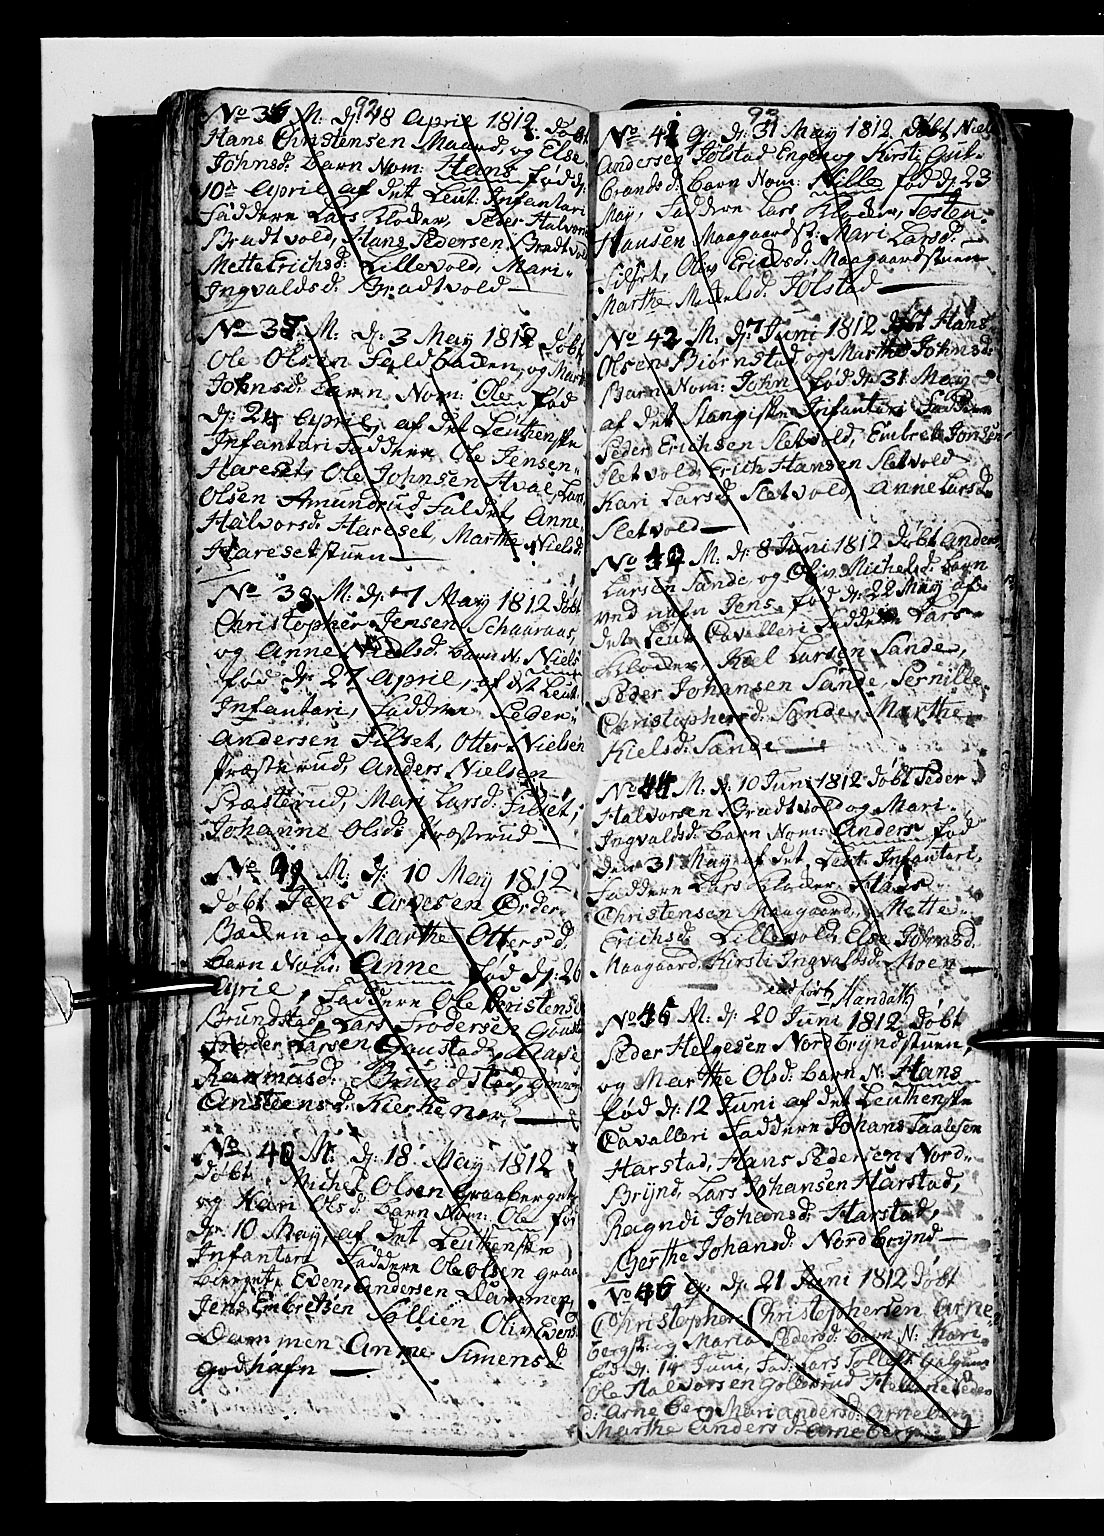 92
No 36 M. d: 28 April 1812 døbt
Hans Christensen Maard, og Else
Johnsd: barn Nom: Hans fød d:
10de April af det Leut: Infantari
Faddere Lars Kloder, Peder Halvors
Bradtvold, Hans Pedersen Bradtvold
Mette Erichsd: Lillevold, Mari
Ingvaldsd: Bradtvold
No 37 M. d: 3 May 1812 døbt
Ole Olsen Faldbaden, og Mart
Johnsd: barn Nom: Ole fød
d: 24 April, af det Leuthenske
Infantari Faddere Ole Jensen
Hareset, Ole Johnsen Hval, Lars
Olsen Amundrud Faldet, Anne
Halvorsd: Hareset, Marthe Nielsd:
Haresetstuen
No 38 M. d: 7 May 1812 døbt
Christopher Jensen Schaaraas,
og Anne Nielsd: barn N: Niels
fød d: 27 April, af det Leut:
Infantari, Faddere Peder
Andersen Filset, Otter Nielsen
Præsterud, Anders Nielsen
Præsterud, Mari Larsd: Filset,
Johanne Olsd: Præsterud
No 39 M. d: 10 May 1812
døbt Jens Arvesen Order
Baden og Marthe Ottersd:
barn Nom: Anne fød d: 26
April, Faddere Ole Christensen
Brundstad, Lars Frodersen Gaustad
Froder Larsen Gaustad, Aase
Rasmusd: Brundstad, Gunnor
Ansteensd: Kierkenær,
No 40 M. d: 18 May 1812
døbt Michel Olsen Graaberget
og Kari Olsd: barn Nom: Ole fød
d: 10 May, af det Leuthenske
Infantari Faddere Ole Olsen Graa
berget, Even Andersen Dammen,
Jens Embretsen Sollien Oliv Evens
Dammen Anne Simensd:
Godhafn
93
No 41 q. d: 31 May 1812 døbt Niels
Andersen Jølstad Engen og Kirsti Gul-
brandsd: barn Nom: Nille fød d: 23
May, Faddere Lars Kloder, Tosten
Hansen Maagaard, Mari Larsd:
Filset, Oliv Ericksd: Maagaardstuen
Marthe Michelsd: Jølstad
No 42 M. d: 7 Juni 1812 døbt Hans
Olsen Biørnstad og Marthe Johnsd:
Barn Nom: John fød d: 31 May
af det Stangiske Infantari Faddere
Peder Erichsen Sletvold, Embret Jonsen
Sletvold, Erich Hansen Sletvold
Kari Larsd: Sletvold, Anne Larsd:
Sletvold
No 43 M. d: 8 Juni 1812 døbt Anders
Larsen Sande og Oliv Michelsd: barn
ved nafn Jens fød d: 22 May af
det Leut: Cavalleri Faddere Lars
Kloder, Kiel Larsen Sande,
Peder Johansen Sande, Pernille
Christophersd: Sande, Marthe
Kielsd: Sande
No 44 M. d: 10 Juni 1812 døbt Peder
Halvorsen Bradtvold og Mari
Ingvaldsd: barn Nom: Anders fød
den 31 May af det Leut: Infantari,
Faddere Lars Kloder, Hans
Christensen Maagaard, Mette
Erichsd: Lillevold, Else Johnsd:
Maagaard, Kirsti Ingvaldsd: Moen
Mandath
No 45 M. d: 20 Juni 1812 døbt
Peder Helgesen Nordbryndstuen,
og Marthe Olsd: barn N: Hans
fød d: 12 Juni af det Leuthenske
Cavalleri Faddere Johans Paalsen
Harstad, Hans Pedersen Nord-
Brynd, Lars Johansen Harstad,
Ragndi Johansd: Harstad,
Berthe Johansd: Nordbrynd
No 46 q. d: 21 Juni 1812 døbt
Christopher Christophersen Arne
berg og Maria Pedersd: barn N: Kari
fød d: 14 Juni, Fad: Lars
Ole Halvorsen Gollerud Hellene Peders
d: Arneberg Mari Andersd: Arneberg
Marthe Andersd: Arneberg